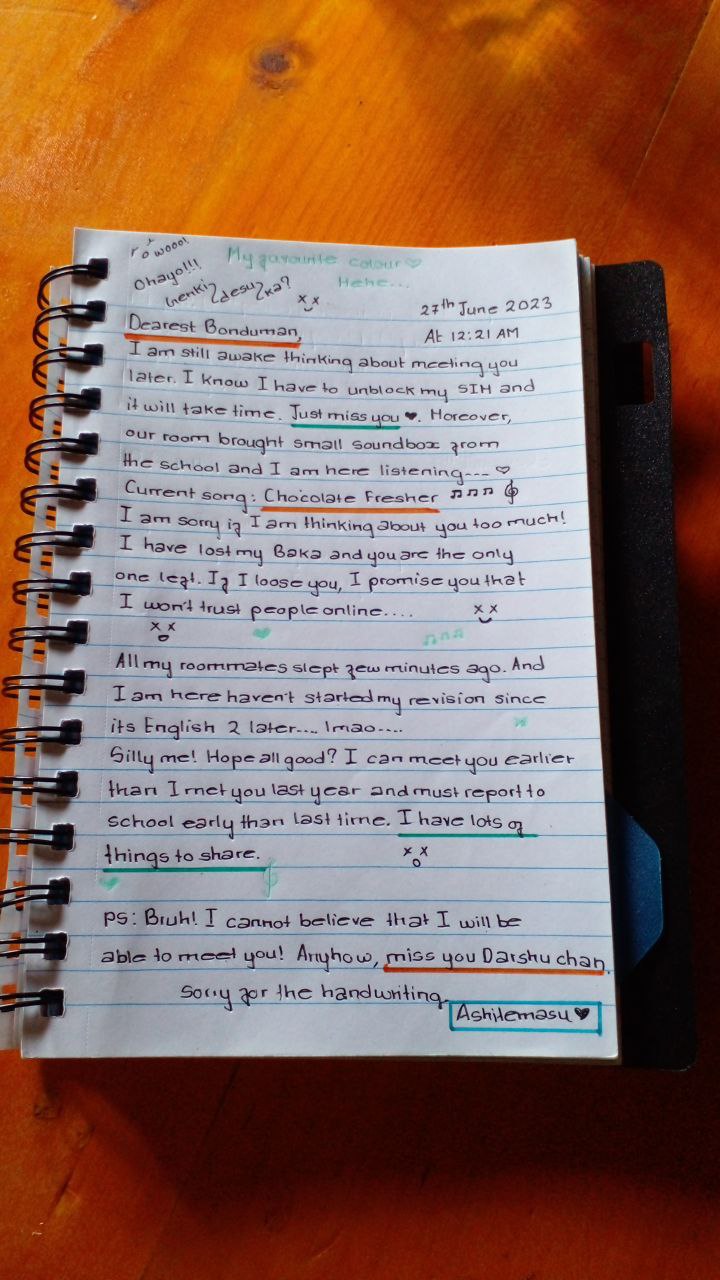 Ohayo!!!
Genki desu ka?
My favourite colour ♡
Hehe...
27th June 2023
At 12:21 AM
Dearest Bonduman,
I am still awake thinking about meeting you
later. I know I have to unblock my SIM and
it will take time. Just miss you ♥. Moreover,
our room brought small soundbox from
the school and I am here listening--- ♡
Current song: Chocolate Fresher ♫ ♫ ♫ 𝄞
I am sorry if I am thinking about you too much!
I have lost my Baka and you are the only
one left. If I loose you, I promise you that
I won't trust people online....
All my roommates slept few minutes ago. And
I am here haven't started my revision since
its English 2 later.... lmao....
Silly me! Hope all good? I can meet you earlier
than I met you last year and must report to
school early than last time. I have lots of
things to share.
PS: Bruh! I cannot believe that I will be
able to meet you! Anyhow, miss you Darshu chan.
Sorry for the handwriting.
Ashitemasu ♥